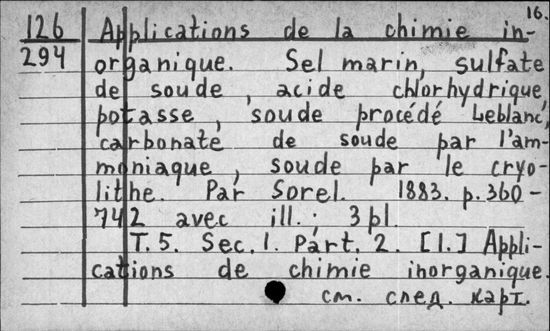 16.
126 Applications de la chimie in-
294 organique. Sel marin, sulfate
de soude, acide chlorhydrique,
potasse, soude procédé Leblanc,
carbonate de soude par l'am-
moniaque, soude par le cryo-
lithe. Par Sorel. 1883. p. 360-
742 avec ill.; 3 pl.
T. 5. Sec. 1. Part. 2. [1.] Appli-
cations de chimie inorganique.
см. след. карт.